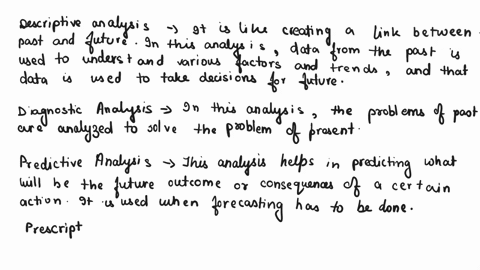 Descriptive analysis → It is like creating a link between
past and future. In this analysis, data from the past is
used to understand various factors and trends, and that
data is used to take decisions for future.
Diagnostic Analysis → In this analysis, the problems of past
are analyzed to solve the problem of present.
Predictive Analysis → This analysis helps in predicting what
will be the future outcome or consequences of a certain
action. It is used when forecasting has to be done.
Prescript